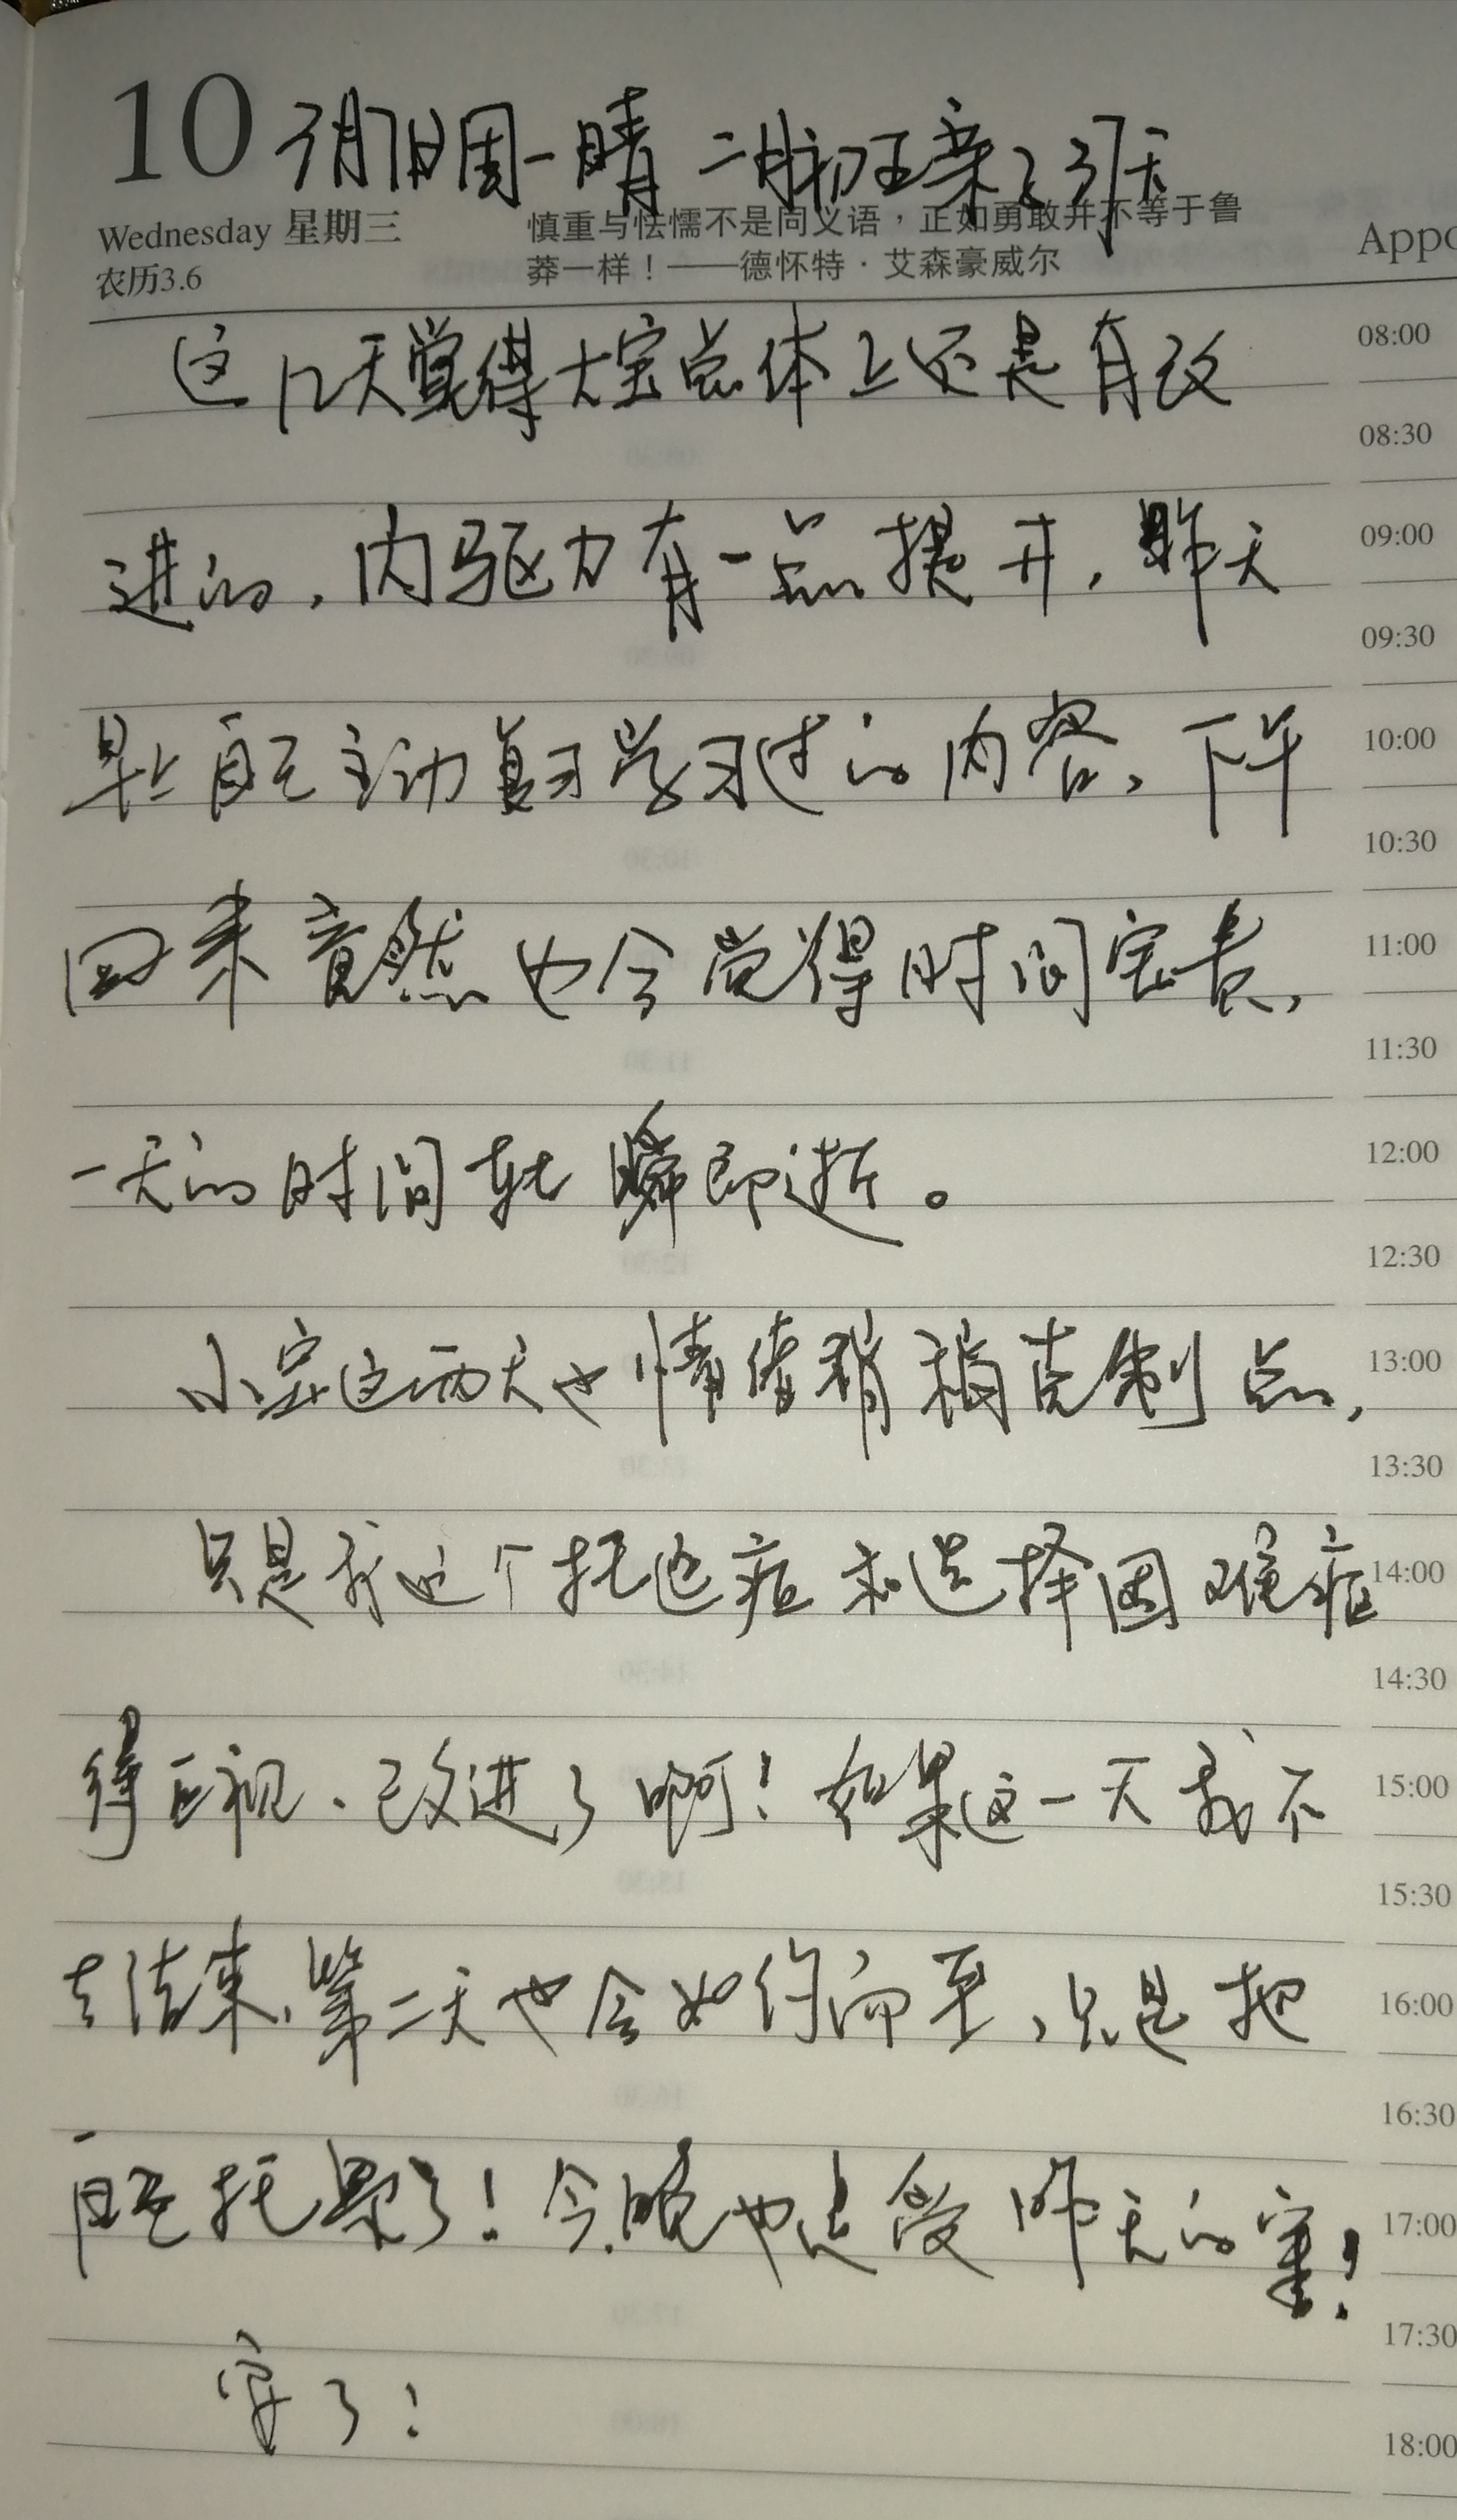 10 3月7日周一晴 二月初五亲了37天
Wednesday 星期三
慎重与怯懦不是同义语，正如勇敢并不等于鲁
农历3.6
莽一样！——德怀特·艾森豪威尔
Appo
这几天觉得大宝总体上还是有改
08:00
08:30
进的，内驱力有一点提升，昨天
09:00
09:30
早上自己主动复习学习过的内容，下午
10:00
10:30
回来竟然也会觉得时间宝贵，
11:00
11:30
一天的时间转瞬即逝。
12:00
12:30
小宝这两天也情绪稍稍克制点，
13:00
13:30
只是我这个拖延症和选择困难症
14:00
14:30
得正视、改进了啊！如果这一天我不
15:00
15:30
去结束，第二天也会如约而至，只是把
16:00
16:30
自己拖累了！今晚也是受昨天的害！
17:00
17:30
安了！
18:00